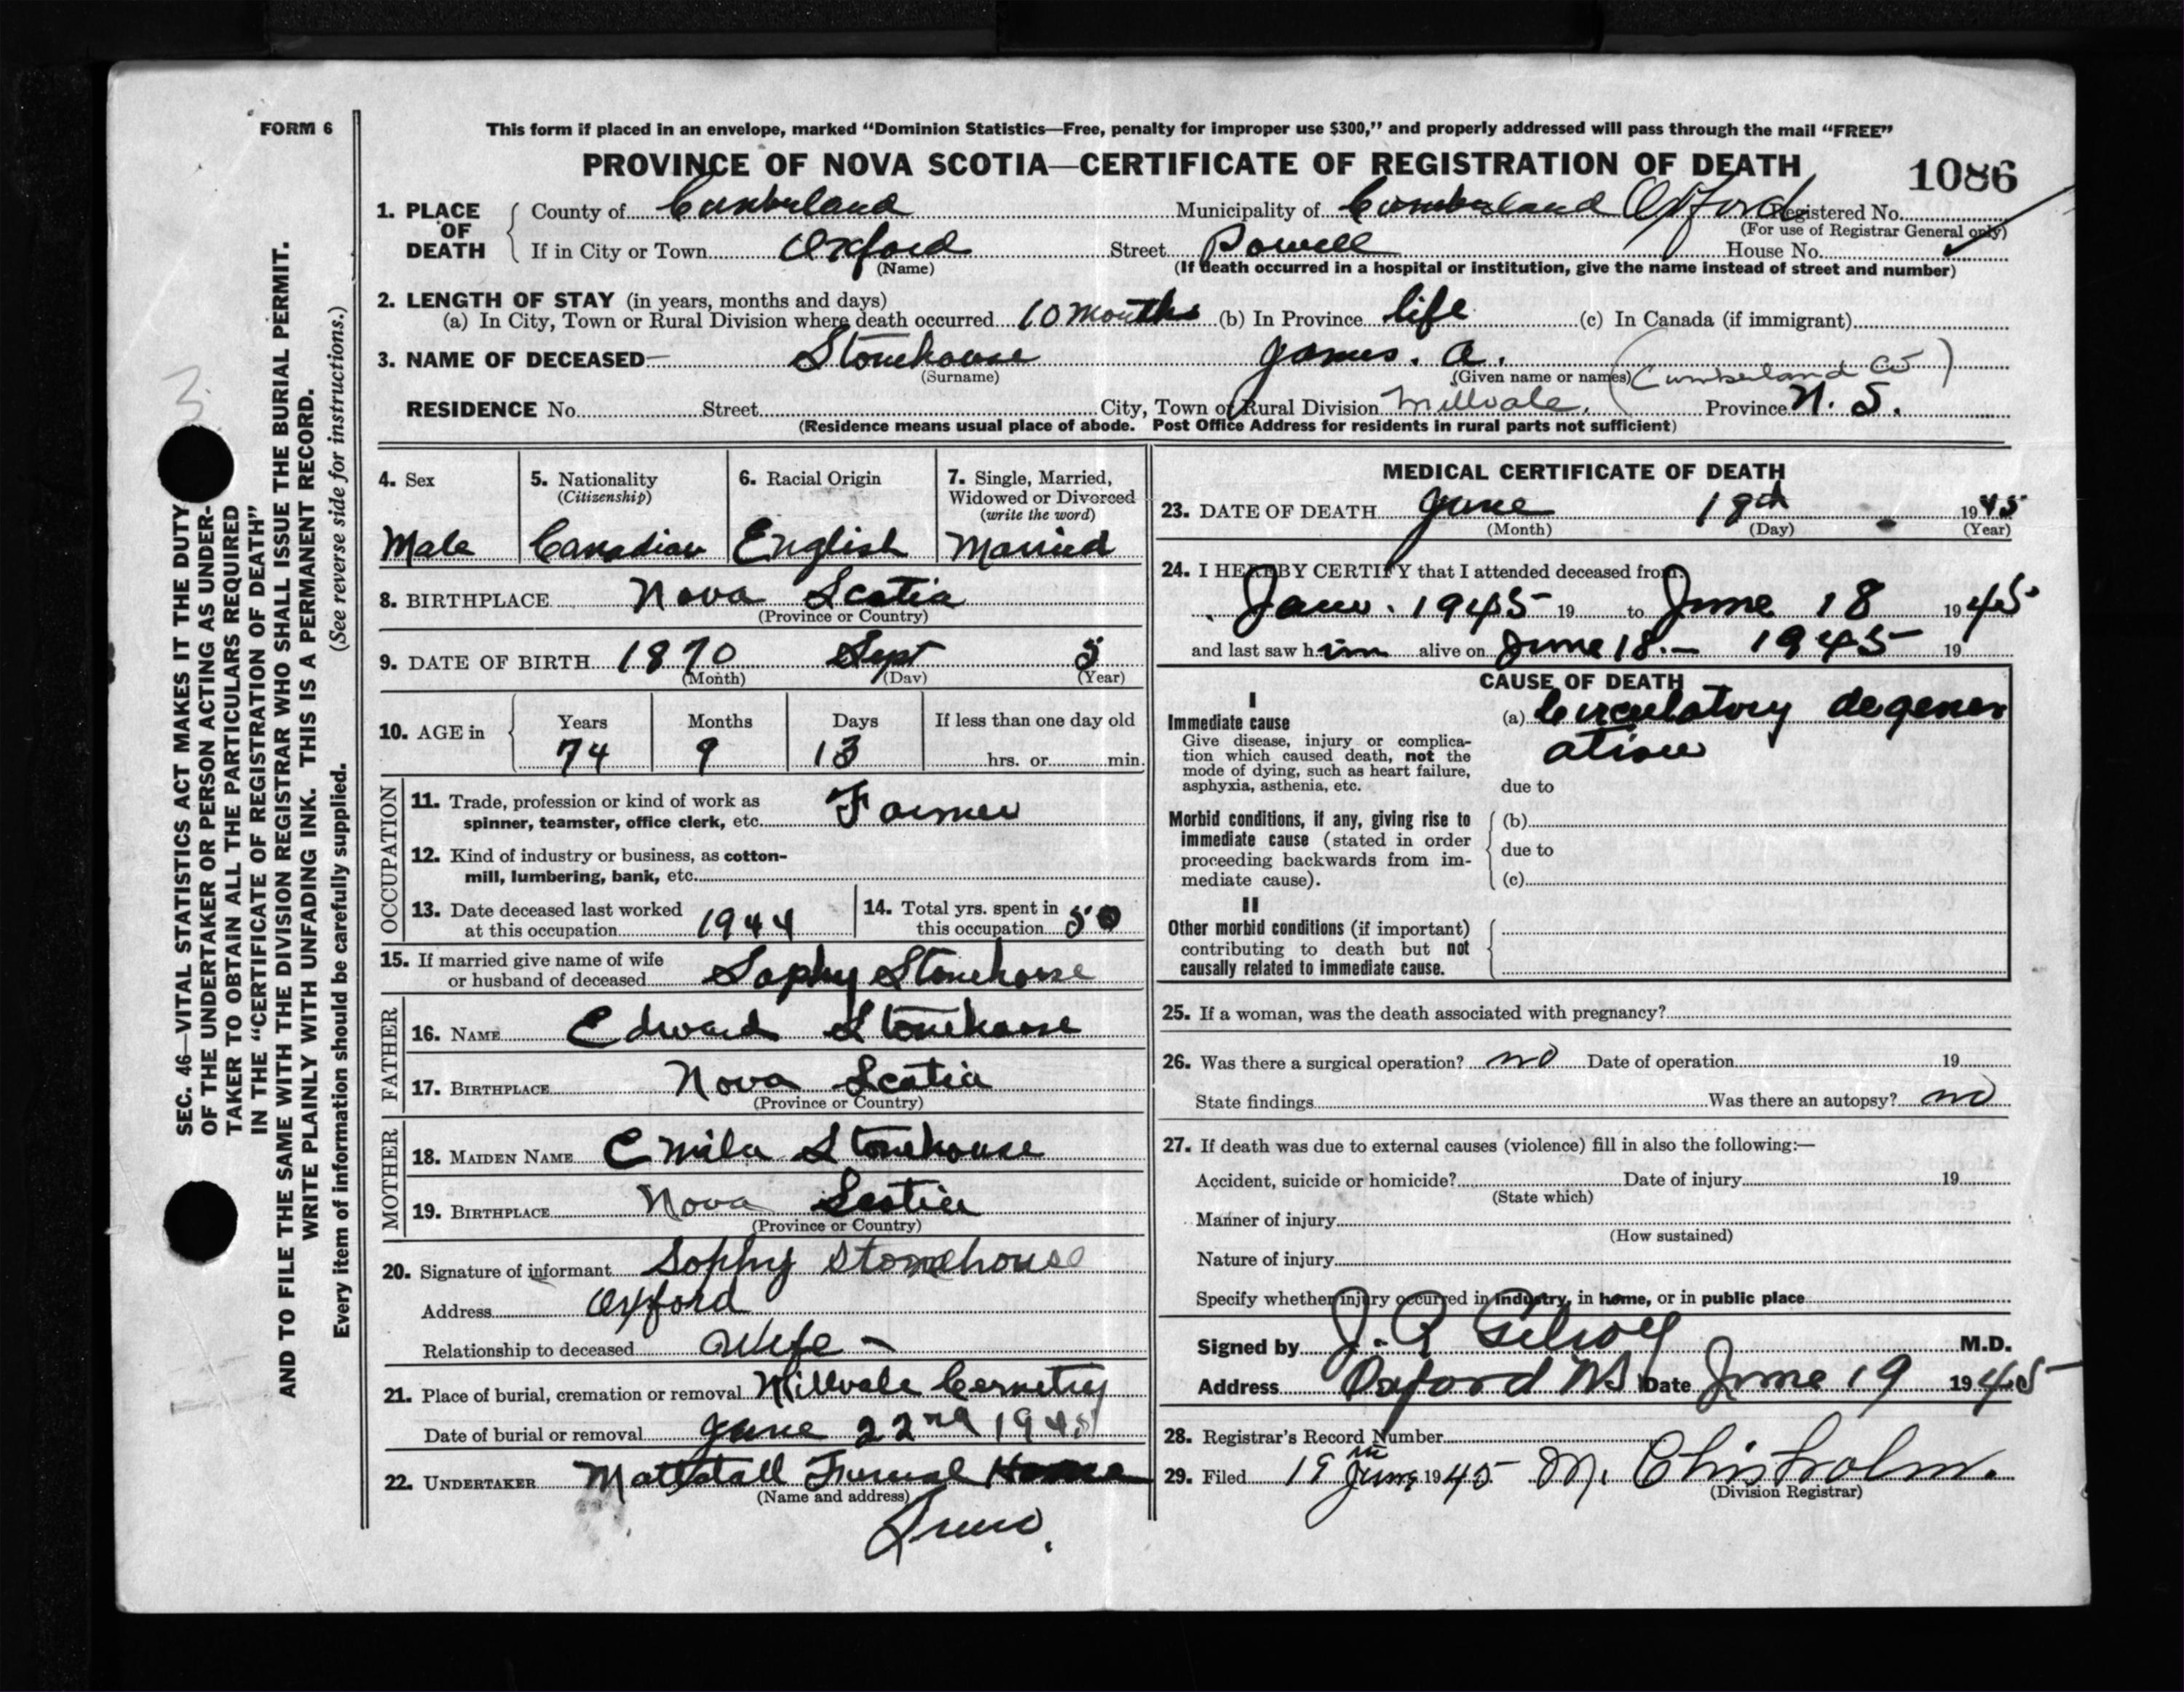 FORM 6
This form if placed in an envelope, marked “Dominion Statistics—Free, penalty for improper use $300,” and properly addressed will pass through the mail “FREE”
PROVINCE OF NOVA SCOTIA—CERTIFICATE OF REGISTRATION OF DEATH
1086
1. PLACE OF DEATH
County of Cumberland Municipality of Cumberland Oxford Registered No.
(For use of Registrar General only)
If in City or Town Oxford Street Powell House No.
(Name) (If death occurred in a hospital or institution, give the name instead of street and number)
2. LENGTH OF STAY (in years, months and days)
(a) In City, Town or Rural Division where death occurred 10 months (b) In Province life (c) In Canada (if immigrant)
3. NAME OF DECEASED— Stonehouse James. A.
(Surname) (Given name or names) (Cumberland Co)
RESIDENCE No. Street City, Town or Rural Division Millvale. Province N. S.
(Residence means usual place of abode. Post Office Address for residents in rural parts not sufficient)
4. Sex
Male
5. Nationality
(Citizenship)
Canadian
6. Racial Origin
English
7. Single, Married,
Widowed or Divorced
(write the word)
Married
8. BIRTHPLACE Nova Scotia
(Province or Country)
9. DATE OF BIRTH 1870 Sept 5
(Month) (Day) (Year)
10. AGE in
Years Months Days If less than one day old
74 9 13 hrs. or min.
OCCUPATION
11. Trade, profession or kind of work as
spinner, teamster, office clerk, etc. Farmer
12. Kind of industry or business, as cotton-
mill, lumbering, bank, etc.
13. Date deceased last worked
at this occupation 1944
14. Total yrs. spent in
this occupation 50
15. If married give name of wife
or husband of deceased Sophy Stonehouse
FATHER
16. NAME Edward Stonehouse
17. BIRTHPLACE Nova Scotia
(Province or Country)
MOTHER
18. MAIDEN NAME Emila Stonehouse
19. BIRTHPLACE Nova Scotia
(Province or Country)
20. Signature of informant Sophy Stonehouse
Address Oxford
Relationship to deceased Wife —
21. Place of burial, cremation or removal Millvale Cemetry
Date of burial or removal June 22nd 1945
22. UNDERTAKER Mattatall Funeral Home
(Name and address)
MEDICAL CERTIFICATE OF DEATH
23. DATE OF DEATH June 18th 1945
(Month) (Day) (Year)
24. I HEREBY CERTIFY that I attended deceased from:
Jan. 1945 19 to June 18 1945
and last saw him alive on June 18.— 1945 19
CAUSE OF DEATH
I
Immediate cause
Give disease, injury or complica-
tion which caused death, not the
mode of dying, such as heart failure,
asphyxia, asthenia, etc.
(a) Circulatory degener
ation
due to
Morbid conditions, if any, giving rise to
immediate cause (stated in order
proceeding backwards from im-
mediate cause).
(b)
due to
(c)
II
Other morbid conditions (if important)
contributing to death but not
causally related to immediate cause.
25. If a woman, was the death associated with pregnancy?
26. Was there a surgical operation? no Date of operation 19
State findings Was there an autopsy? no
27. If death was due to external causes (violence) fill in also the following:—
Accident, suicide or homicide? Date of injury 19
(State which)
Manner of injury
(How sustained)
Nature of injury
Specify whether injury occurred in industry, in home, or in public place
Signed by J. R. Gilroy M.D.
Address Oxford NS Date June 19 1945
28. Registrar's Record Number
29. Filed 19 June 1945 M. Chisholm.
(Division Registrar)
SEC. 46—VITAL STATISTICS ACT MAKES IT THE DUTY
OF THE UNDERTAKER OR PERSON ACTING AS UNDER-
TAKER TO OBTAIN ALL THE PARTICULARS REQUIRED
IN THE “CERTIFICATE OF REGISTRATION OF DEATH”
AND TO FILE THE SAME WITH THE DIVISION REGISTRAR WHO SHALL ISSUE THE BURIAL PERMIT.
WRITE PLAINLY WITH UNFADING INK. THIS IS A PERMANENT RECORD.
Every item of information should be carefully supplied. (See reverse side for instructions.)
3